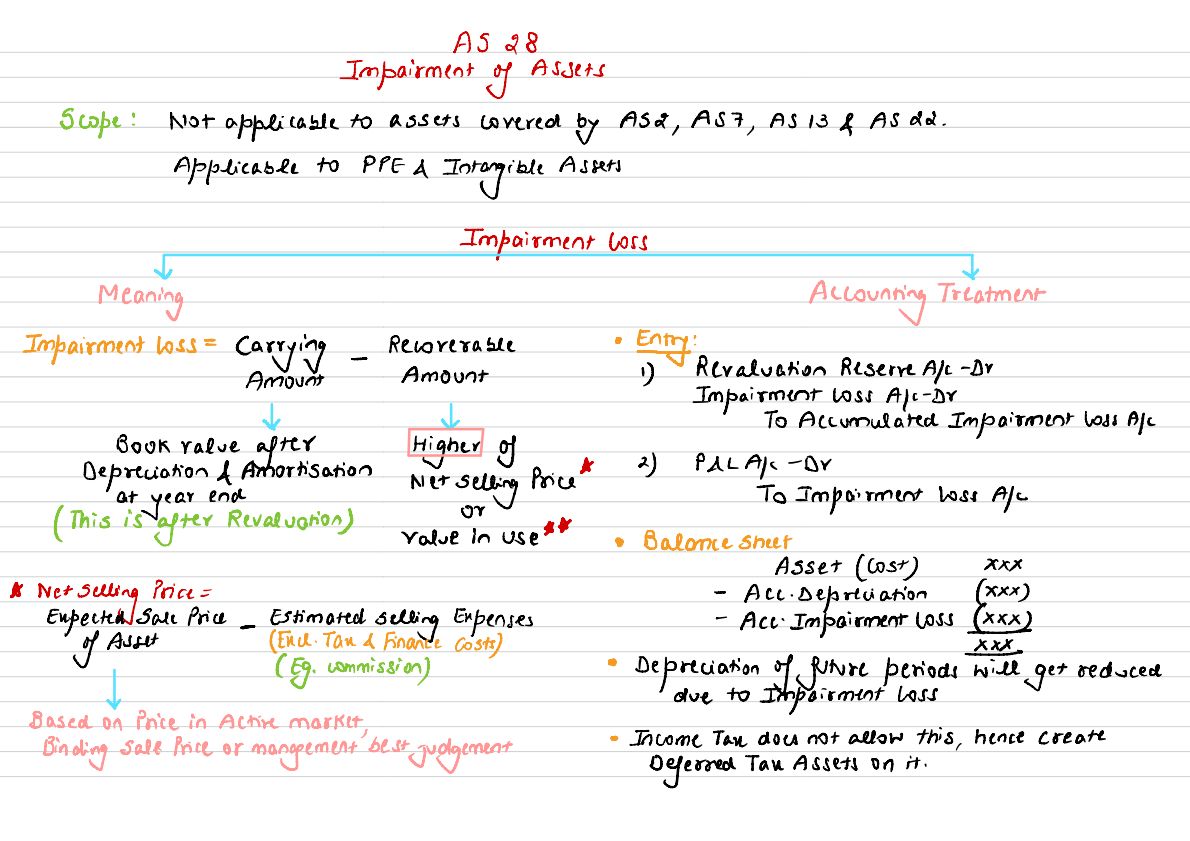 AS 28
Impairment of Assets
Scope: Not applicable to assets covered by AS2, AS7, AS 13 & AS 22.
Applicable to PPE & Intangible Assets
Impairment Loss
Meaning
Impairment Loss = Carrying Amount – Recoverable Amount
Book value after
Depreciation & Amortisation
at year end
(This is after Revaluation)
Higher of
Net Selling Price *
or
Value in use **
* Net Selling Price =
Expected Sale Price of Asset – Estimated Selling Expenses
(Excl. Tax & Finance Costs)
(Eg. commission)
Based on Price in Active market,
Binding Sale Price or mangement best judgement
Accounting Treatment
• Entry:
1) Revaluation Reserve A/c -Dr
Impairment Loss A/c -Dr
To Accumulated Impairment Loss A/c
2) P&L A/c -Dr
To Impairment Loss A/c
• Balance Sheet
Asset (Cost) xxx
- Acc. Depreciation (xxx)
- Acc. Impairment Loss (xxx)
xxx
• Depreciation of future periods will get reduced
due to Impairment Loss
• Income Tax does not allow this, hence create
Deferred Tax Assets on it.